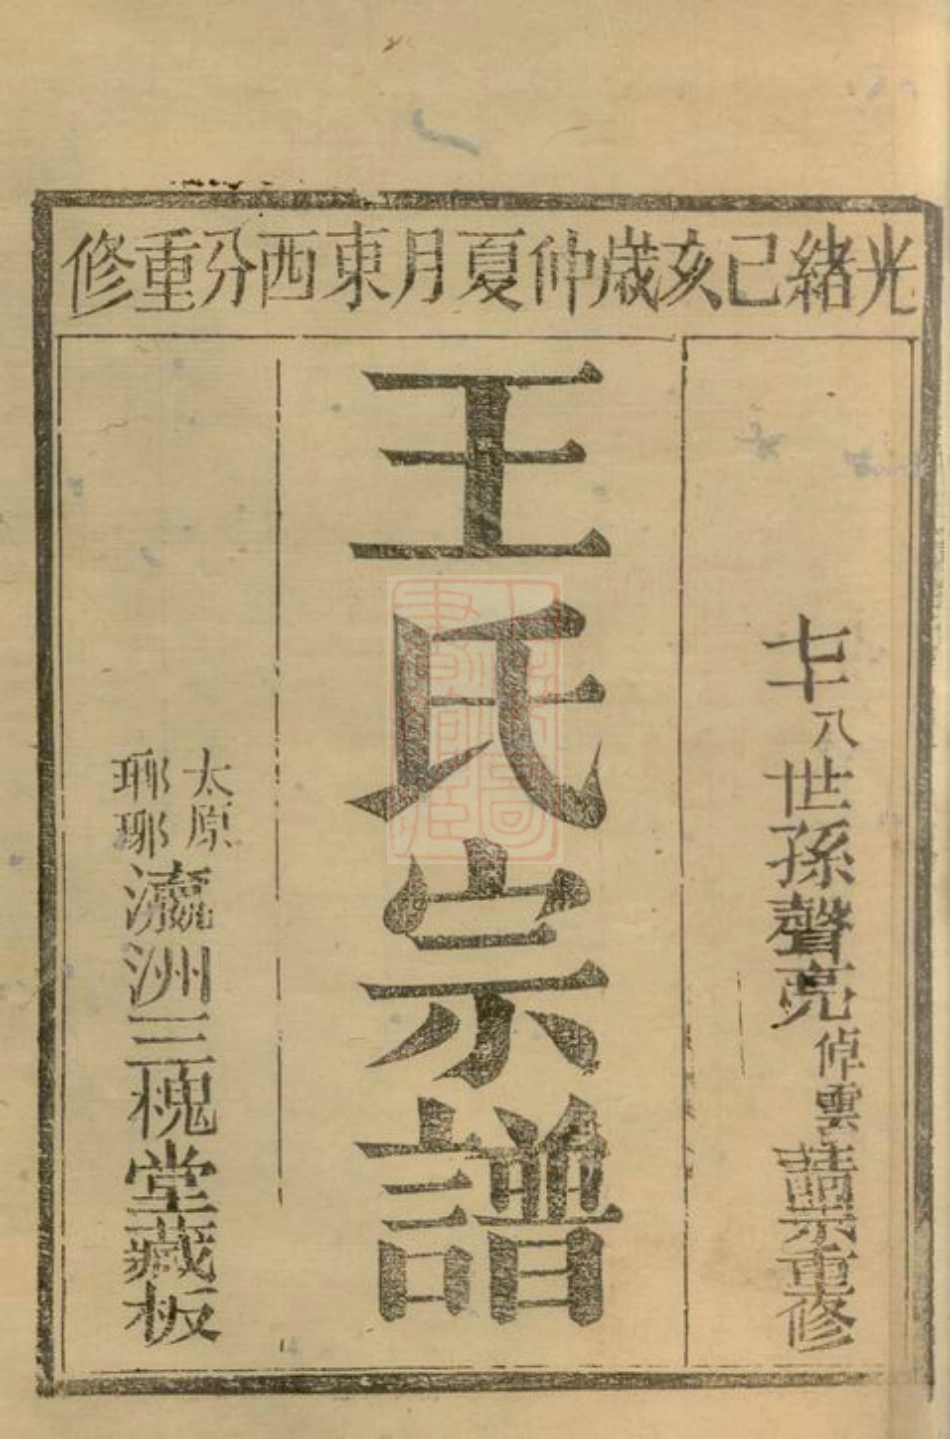 光緒己亥歲仲夏月東西分重修
七十八世孫聲亮倬雲重修
王氏宗譜
太原
瑯琊
瀛洲三槐堂藏板